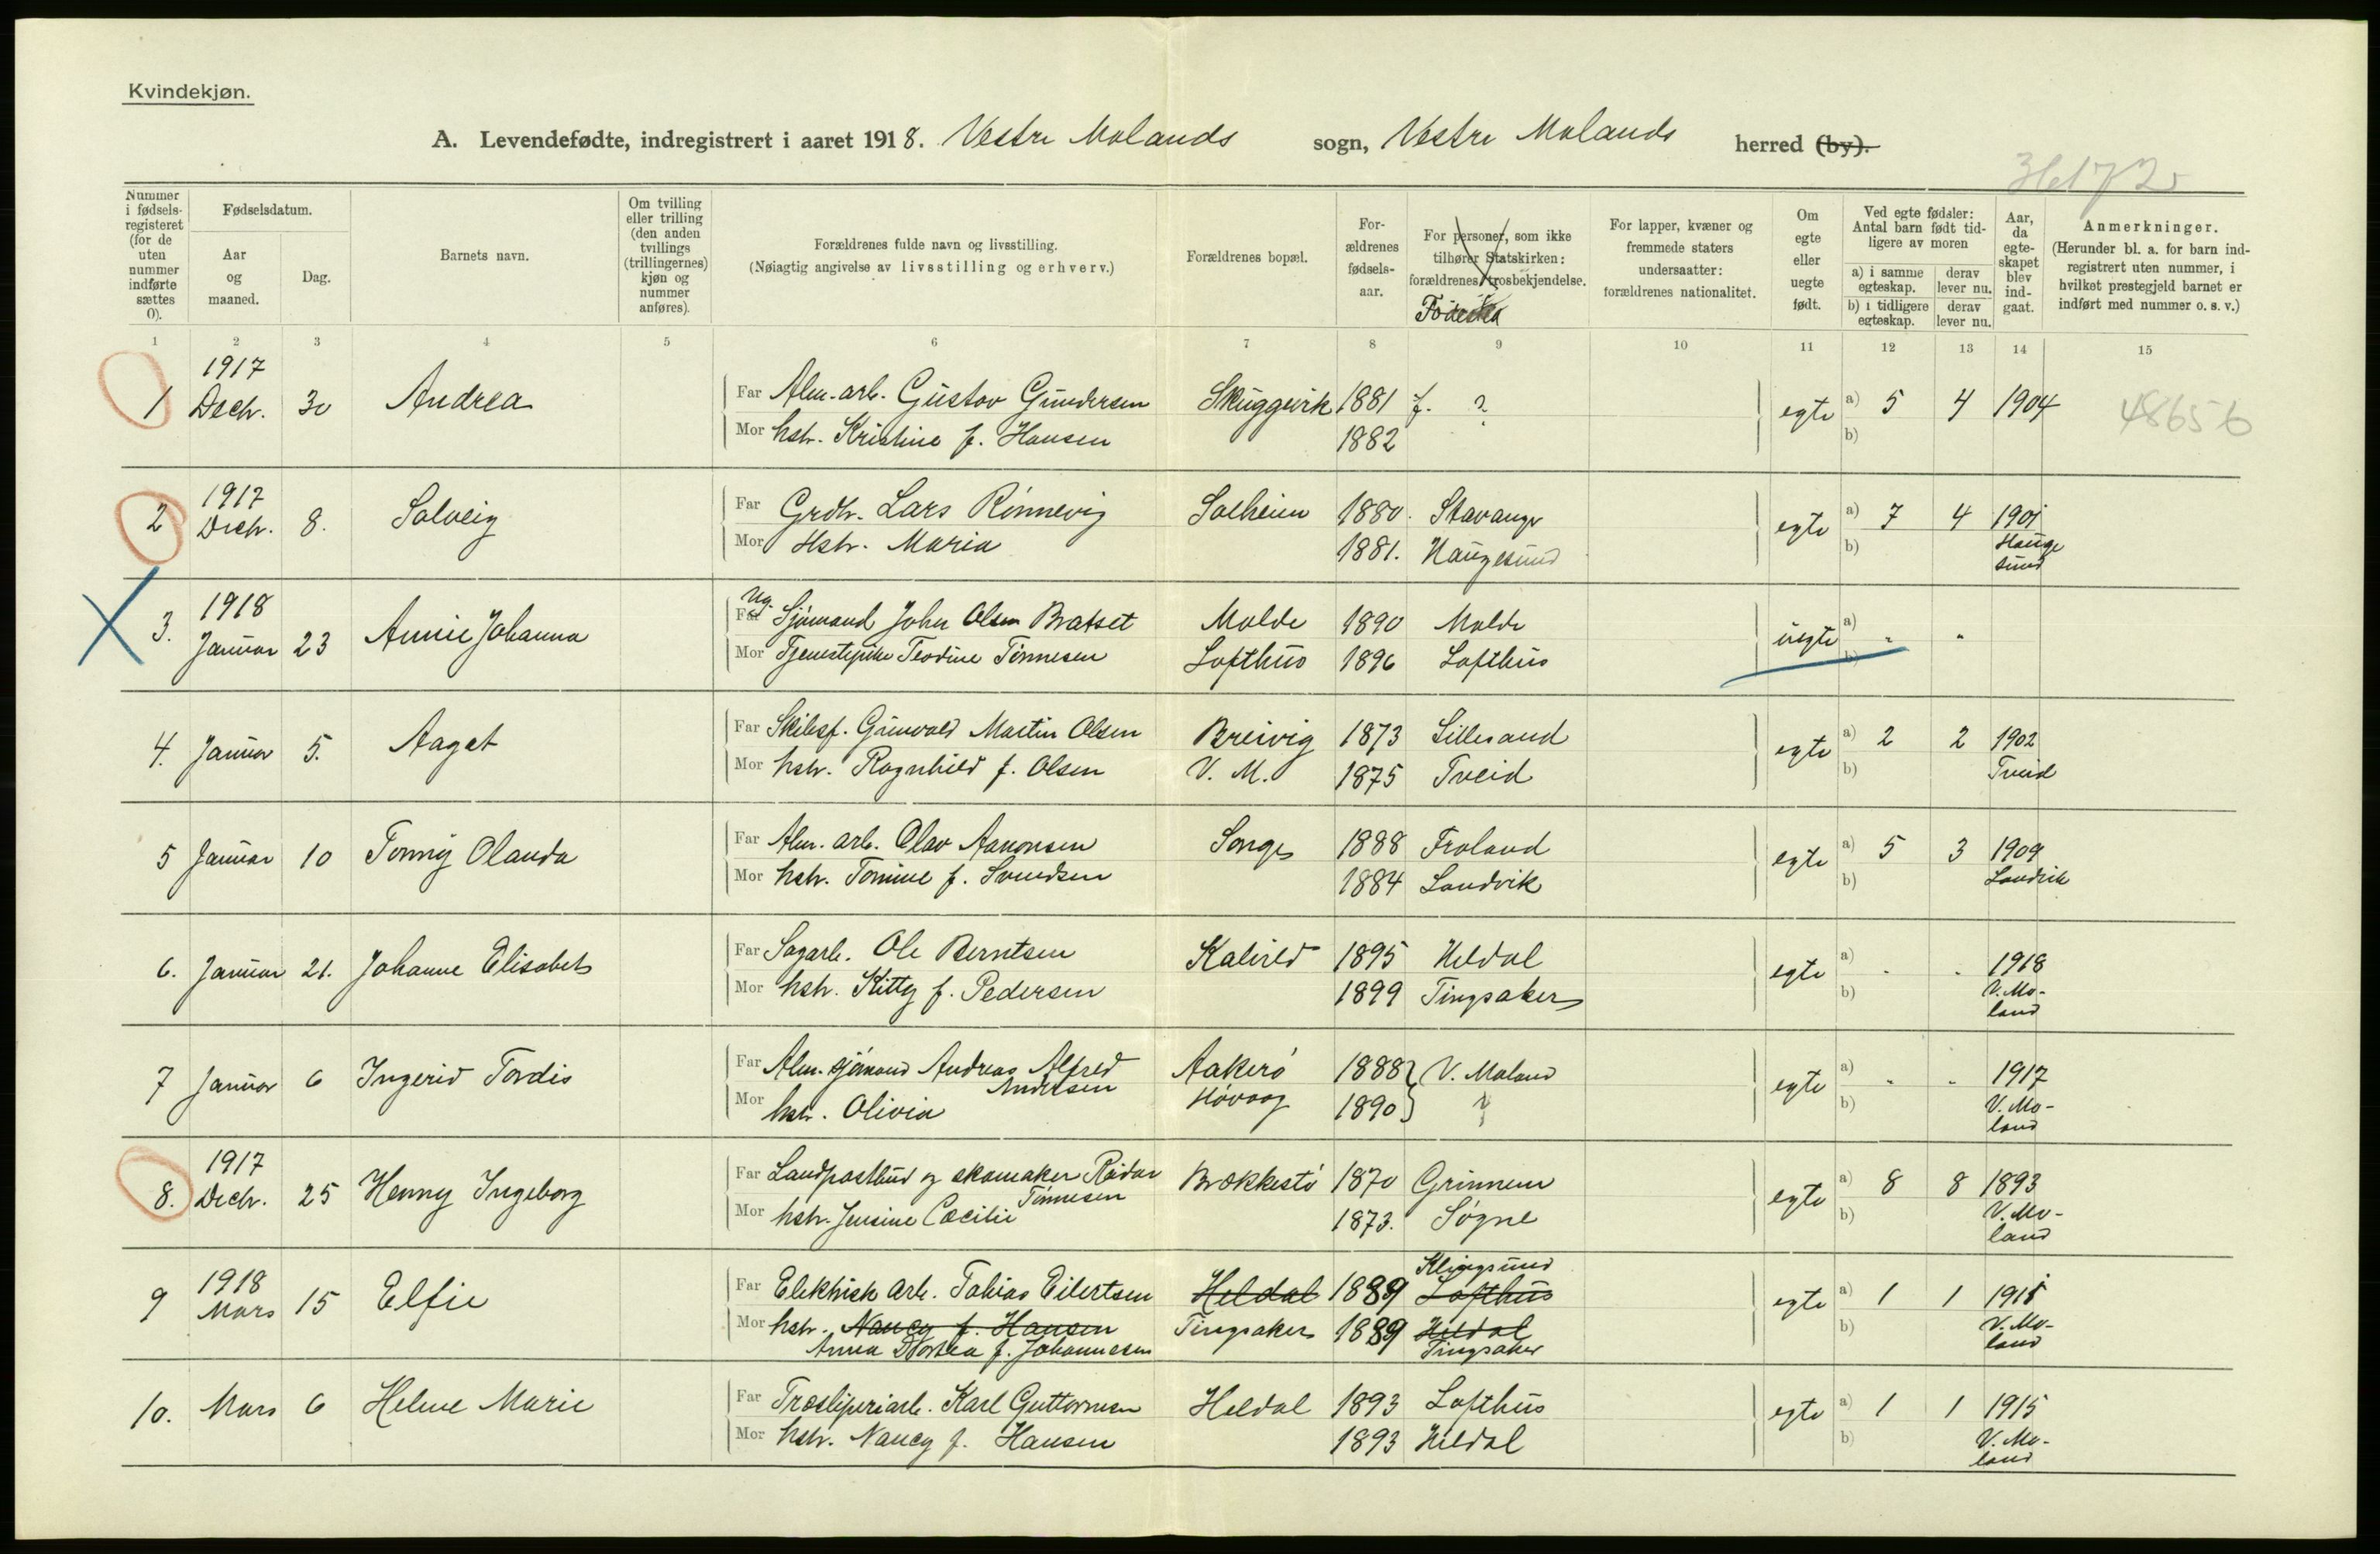 Kvindekjøn.
A. Levendefødte, indregistrert i aaret 1918. Vestre Molands sogn, Vestre Molands herred (by).
Nummer i fødselsregisteret (for de uten nummer indførte sættes 0).
Fødselsdatum.
Aar og maaned.
Dag.
Barnets navn.
Om tvilling eller trilling (den anden tvillings (trillingernes) kjøn og nummer anføres).
Forældrenes fulde navn og livsstilling.
(Nøiagtig angivelse av livsstilling og erhverv.)
Forældrenes bopæl.
Forældrenes fødselsaar.
For personer, som ikke tilhører Statskirken: forældrenes trosbekjendelse.
For lapper, kvæner og fremmede staters undersaatter: forældrenes nationalitet.
Om egte eller uegte født.
Ved egte fødsler: Antal barn født tidligere av moren
a) i samme egteskap. derav lever nu.
b) i tidligere egteskap. derav lever nu.
Aar, da egteskapet blev indgaat.
Anmerkninger.
(Herunder bl. a. for barn indregistrert uten nummer, i hvilket prestegjeld barnet er indført med nummer o. s. v.)
1 2 3 4 5 6 7 8 9 10 11 12 13 14 15
1917
1 Dechr. 30 Andrea Far Alm. arb. Gustav Gundersen Skuggevik 1881 f. ? egte a) 5 4 1904 48656
Mor hstr. Kristine f. Hansen 1882 b)
1917
2 Dechr. 8. Solveig Far Grdbr. Lars Rønnevig Solheim 1880. Stavanger egte a) 7 4 1901
Mor Hstr. Maria 1881. Haugesund b) Haugesund
1918
3. Januar 23 Annie Johanna Ug. Far Sjømand John Olsen Bratset Molde 1890 Molde uegte a) " "
Mor Tjenestepike Teodine Tønnesen Lofthus 1896 Lofthus b)
4. Januar 5. Aagat Far Skibsf. Grunvald Martin Olsen Breivig 1873 Lillesand egte a) 2 2 1902
Mor hstr. Ragnhild f. Olsen V. M. 1875 Tveid b) Tveid
5 Januar 10 Tonny Olanda Far Alm. arb. Olav Aanonsen Songe 1888 Froland egte a) 5 3 1909
Mor hstr. Tomine f. Svendsen 1884 Landvik b) Landvik
6. Januar 21. Johanne Elisabet Far Sagarb. Ole Berntsen Kaldvell 1895 Heldal egte a) " " 1918
Mor hstr. Kitty f. Pedersen 1899 Tingsaker b) V. Moland
7 Januar 6 Ingerid Tordis Far Alm. sjømand Andreas Alfred Andersen Aakerø 1888 V. Moland egte a) " " 1917
Mor hstr. Olivia Høvaag 1890 b) V. Moland
1917
8. Dechr. 25 Henny Ingeborg Far Landpostbud og skomaker Reidar Tønnesen Brækkestø 1870 Grimnem egte a) 8 8 1893
Mor hstr. Jensine Cæcilie 1873. Søgne b) V. Moland
1918
9 Mars 15 Elfie Far Elektrisk arb. Tobias Eilertsen Heldal 1889 Klingsund Lofthus egte a) 1 1 1915
Mor hstr. Nancy f. Hansen Tingsaker 1889 Heldal b) V. Moland
Anna Dorthea f. Johannesen Tingsaker
10. Mars 6 Helene Marie Far Træsliperiarb. Karl Guttormsen Heldal 1893 Lofthus egte a) 1 1 1915
Mor hstr. Nancy f. Hansen 1893 Heldal b) V. Moland